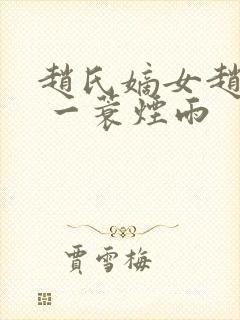 趙氏嫡女趙
一蓑煙雨
賈雪梅